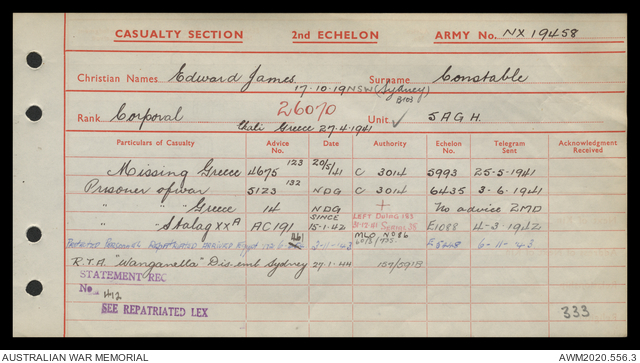 CASUALTY SECTION 2nd ECHELON ARMY No. NX 19458
Christian Names Edward James Surname Constable
17-10-19 NSW (Sydney)
Rank Corporal 26070 Unit 5 A G H.
Greece 27-4-1941
Particulars of Casualty Advice No. Date Authority Echelon No. Telegram Sent Acknowledgment Received
Missing Greece 4675 123 20/5/41 C 3014 5993 25-5-1941
Prisoner of war 5123 132 NDG C 3014 6435 3-6-1941
" " Greece 14 NDG + No advice ZMD
" " Stalag XX A AC 191 SINCE 15-1-42 E1088 4-3-1942
REPATRIATED 3-11-43 6-11-43
R.T.A. "Wanganella" Dis-emb Sydney 27-1-44 157/5918
STATEMENT REC
No. 412
SEE REPATRIATED LEX
333
AUSTRALIAN WAR MEMORIAL AWM2020.556.3